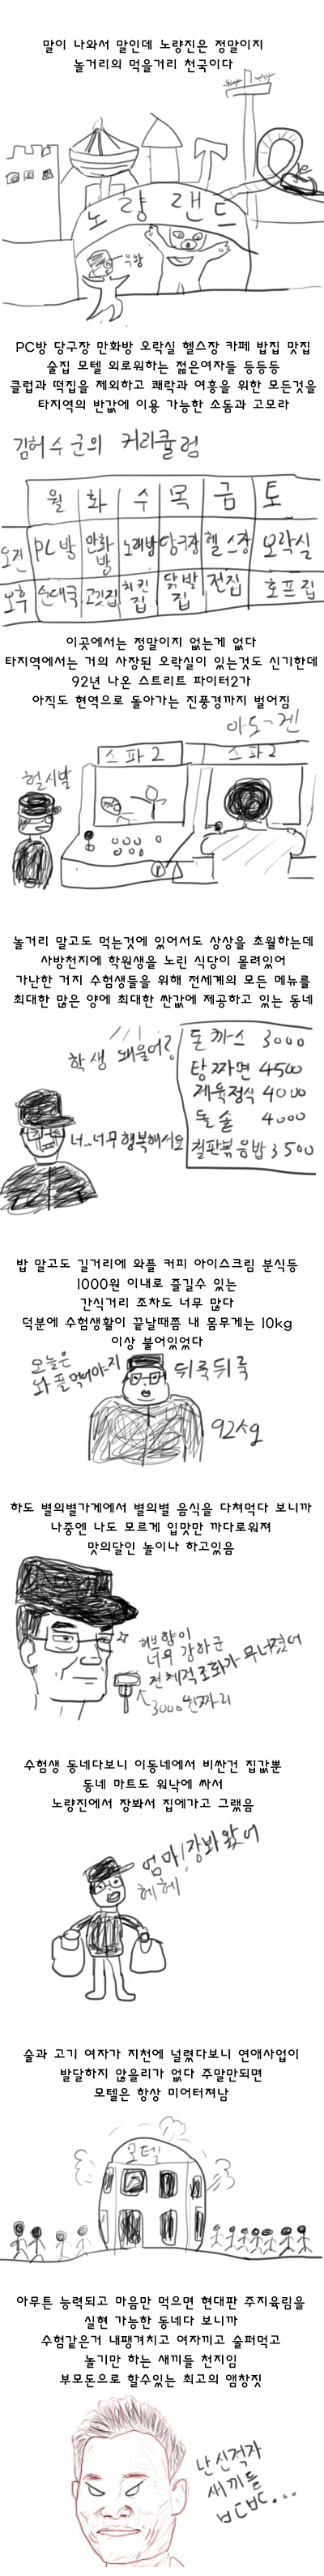 말이 나와서 말인데 노량진은 정말이지
놀거리의 먹을거리 천국이다
노량랜드
우왕
PC방 당구장 만화방 오락실 헬스장 카페 밥집 맛집
술집 모텔 외로워하는 젊은여자들 등등등
클럽과 떡집을 제외하고 쾌락과 여흥을 위한 모든것을
타지역의 반값에 이용 가능한 소돔과 고모라
김허수군의 커리큘럼
월 화 수 목 금 토
오전 PC방 만화방 노래방 당구장 헬스장 오락실
오후 순대국 고깃집 치킨집 닭발집 전집 호프집
이곳에서는 정말이지 없는게 없다
타지역에서는 거의 사장된 오락실이 있는것도 신기한데
92년 나온 스트리트 파이터2가
아직도 현역으로 돌아가는 진풍경까지 벌어짐
아도-겐
스파2
스파2
헐시발
놀거리 말고도 먹는것에 있어서도 상상을 초월하는데
사방천지에 학원생을 노린 식당이 몰려있어
가난한 거지 수험생들을 위해 전세계의 모든 메뉴를
최대한 많은 양에 최대한 싼값에 제공하고 있는 동네
학생 왜울어?
너..너무 행복해서요
돈까스 3000
탕짜면 4500
제육정식 4000
돌솥 4000
철판볶음밥 3500
밥 말고도 길거리에 와플 커피 아이스크림 분식등
1000원 이내로 즐길수 있는
간식거리 조차도 너무 많다
덕분에 수험생활이 끝날때쯤 내 몸무게는 10kg
이상 불어있었다
오늘은
와플먹어야지
뒤룩뒤룩
92kg
하도 별의별가게에서 별의별 음식을 다쳐먹다 보니까
나중엔 나도 모르게 입맛만 까다로워져
맛의달인 놀이나 하고있음
허브향이
너무 강하군
전체적조화가 무너졌어
3000원짜리
수험생 동네다보니 이동네에서 비싼건 집값뿐
동네 마트도 워낙에 싸서
노량진에서 장봐서 집에가고 그랬음
엄마! 장봐왔어
헤헤
술과 고기 여자가 지천에 널렸다보니 연애사업이
발달하지 않을리가 없다 주말만되면
모텔은 항상 미어터져남
모텔
아무튼 능력되고 마음만 먹으면 현대판 주지육림을
실현 가능한 동네다 보니까
수험같은거 내팽겨치고 여자끼고 술퍼먹고
놀기만 하는 새끼들 천지임
부모돈으로 할수있는 최고의 앰창짓
난신적자
새끼들
ㅂㄷㅂㄷ...